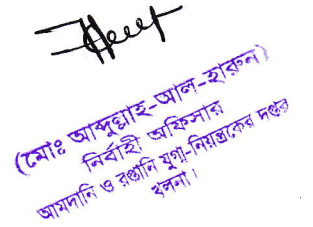 (মোঃ আব্দুল্লাহ-আল-হারুন)
নির্বাহী অফিসার
আমদানি ও রপ্তানি যুগ্ম-নিয়ন্ত্রকের দপ্তর
খুলনা।